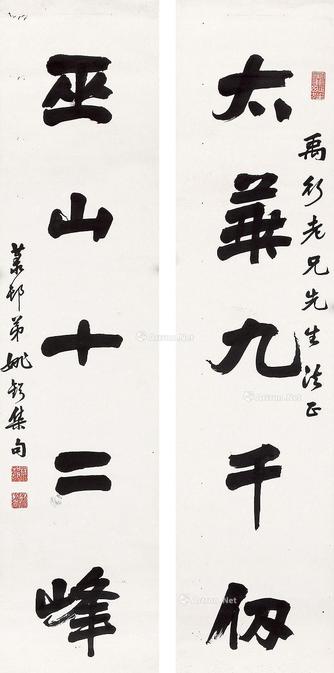 太華九千仞
禹行老兄先生法正
巫山十二峰
弟姚 集句